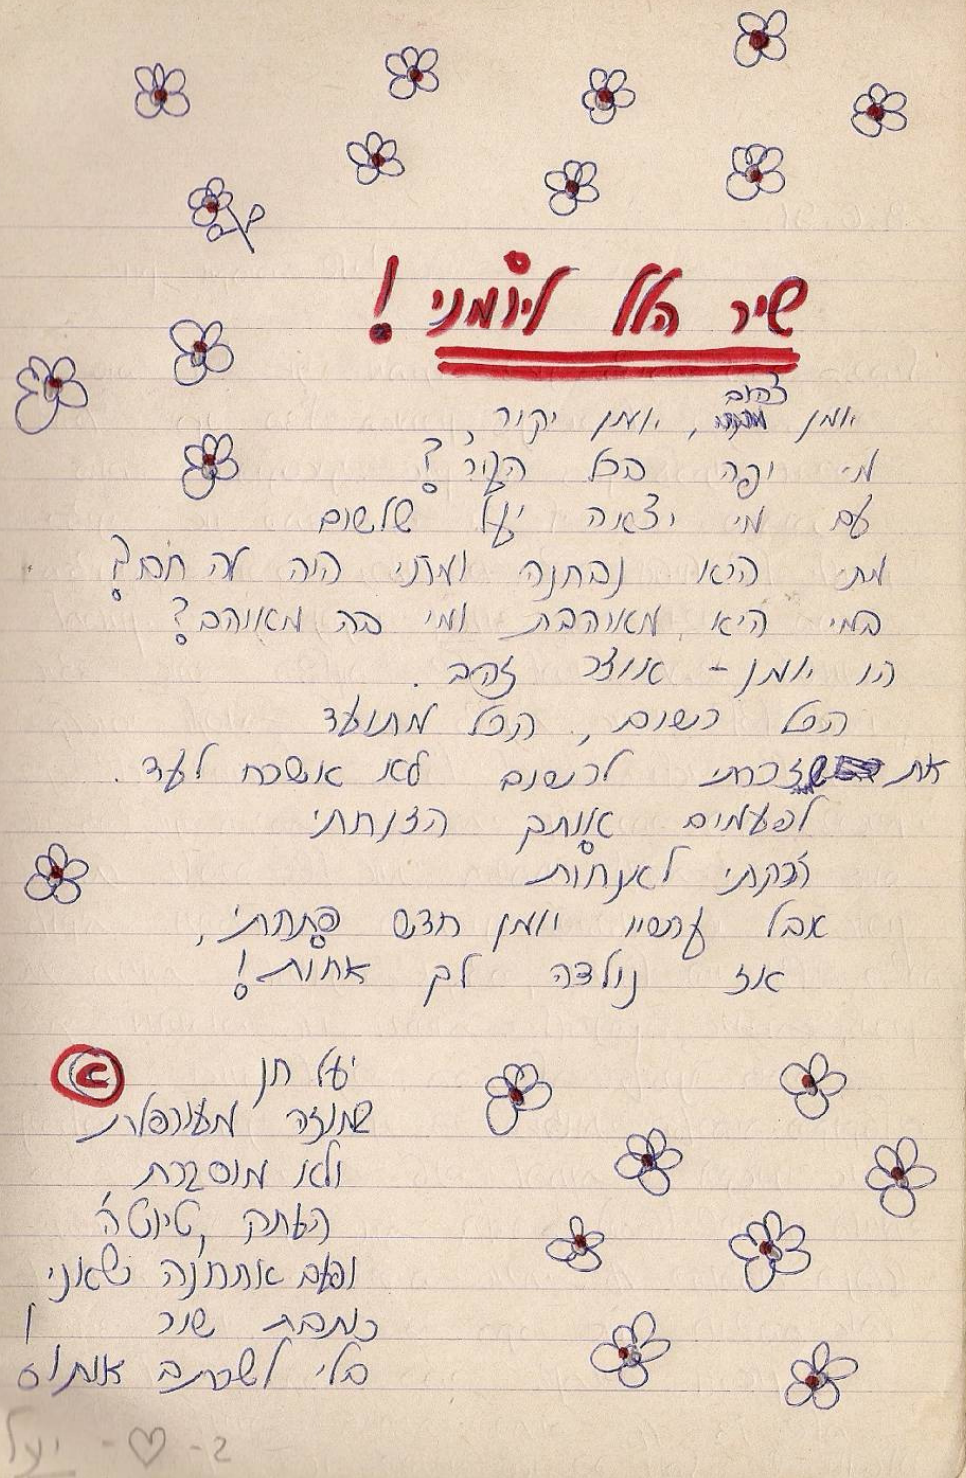 שיר הלל ליומני!
צהוב
יומן, יומן יקיר,
מי יפה בכל העיר?
עם מי יצאה יעל שלשום
מתי היא נבחנה ומתי היה לה חם?
במי היא מאוהבת ומי בה מאוהב?
הו יומן - אוצר זהב.
הכל רשום, הכל מתועד
את שזכרתי לרשום לא אשכח לעד.
לפעמים אותך הזנחתי
נזקקתי לאנחות
אבל עכשיו יומן חדש פתחתי,
אז נולדה לך אחות!
יעל חן
שמוזה מעורפלת
ולא מוסברת
העתק, טיוטה
ופעם אחרונה שאני
כותבת שיר
בלי לשכתב אותו!
יעל - ♡ - 2